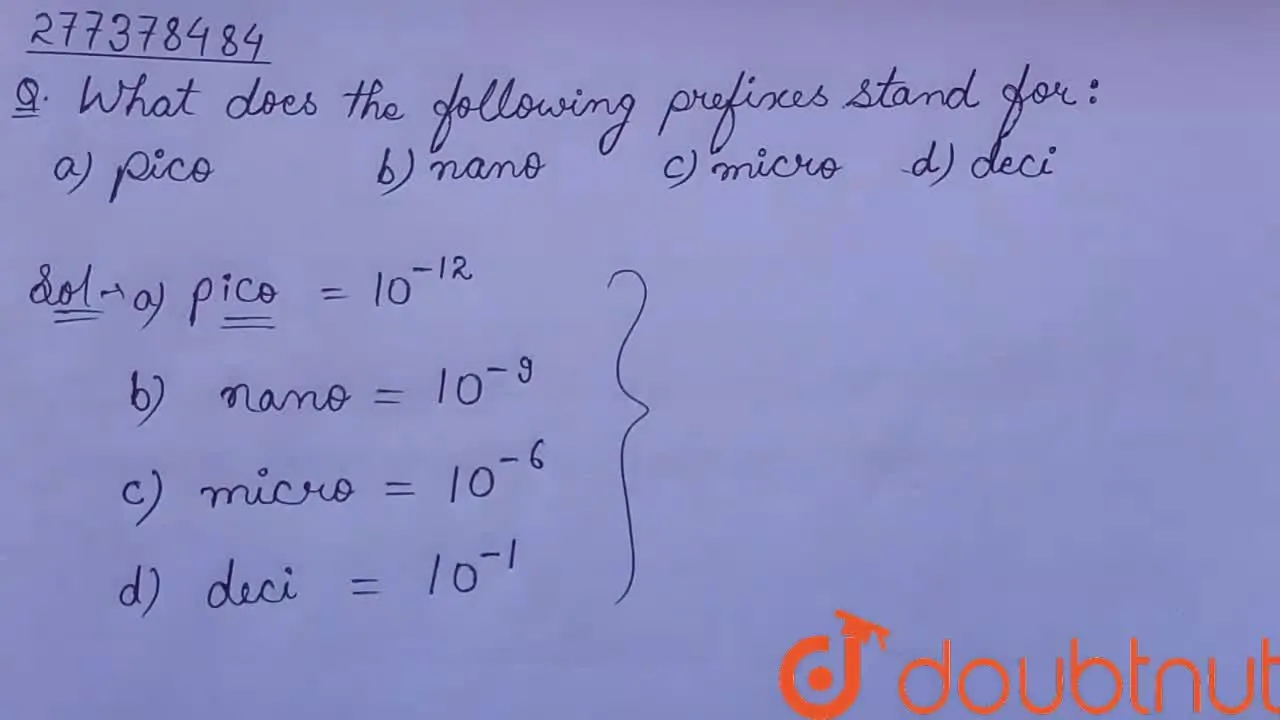 277378484
Q. What does the following prefixes stand for:
a) pico b) nano c) micro d) deci
Sol → a) pico = 10⁻¹²
b) nano = 10⁻⁹
c) micro = 10⁻⁶
d) deci = 10⁻¹
doubtnut